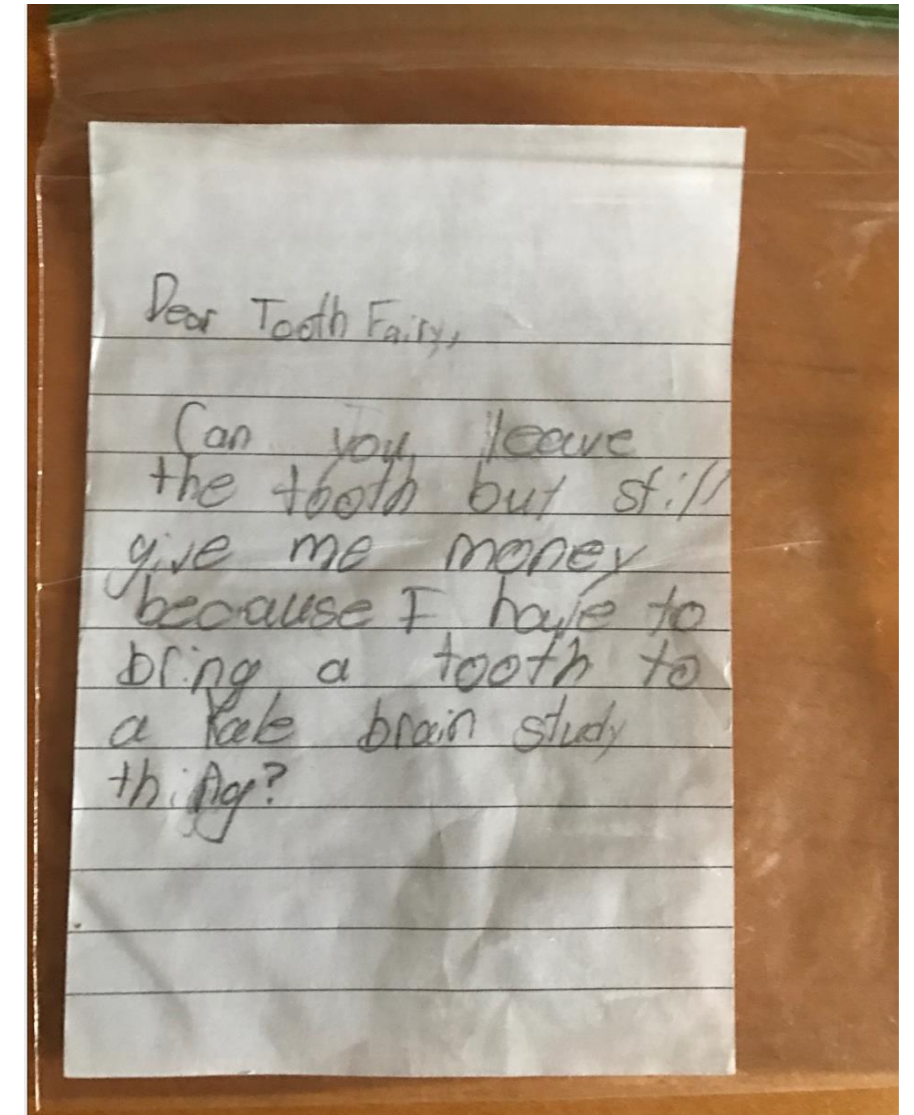 Dear Tooth Fairy,
Can you leave
the tooth but still
give me money
because I have to
bring a tooth to
a Yale brain study
thing?